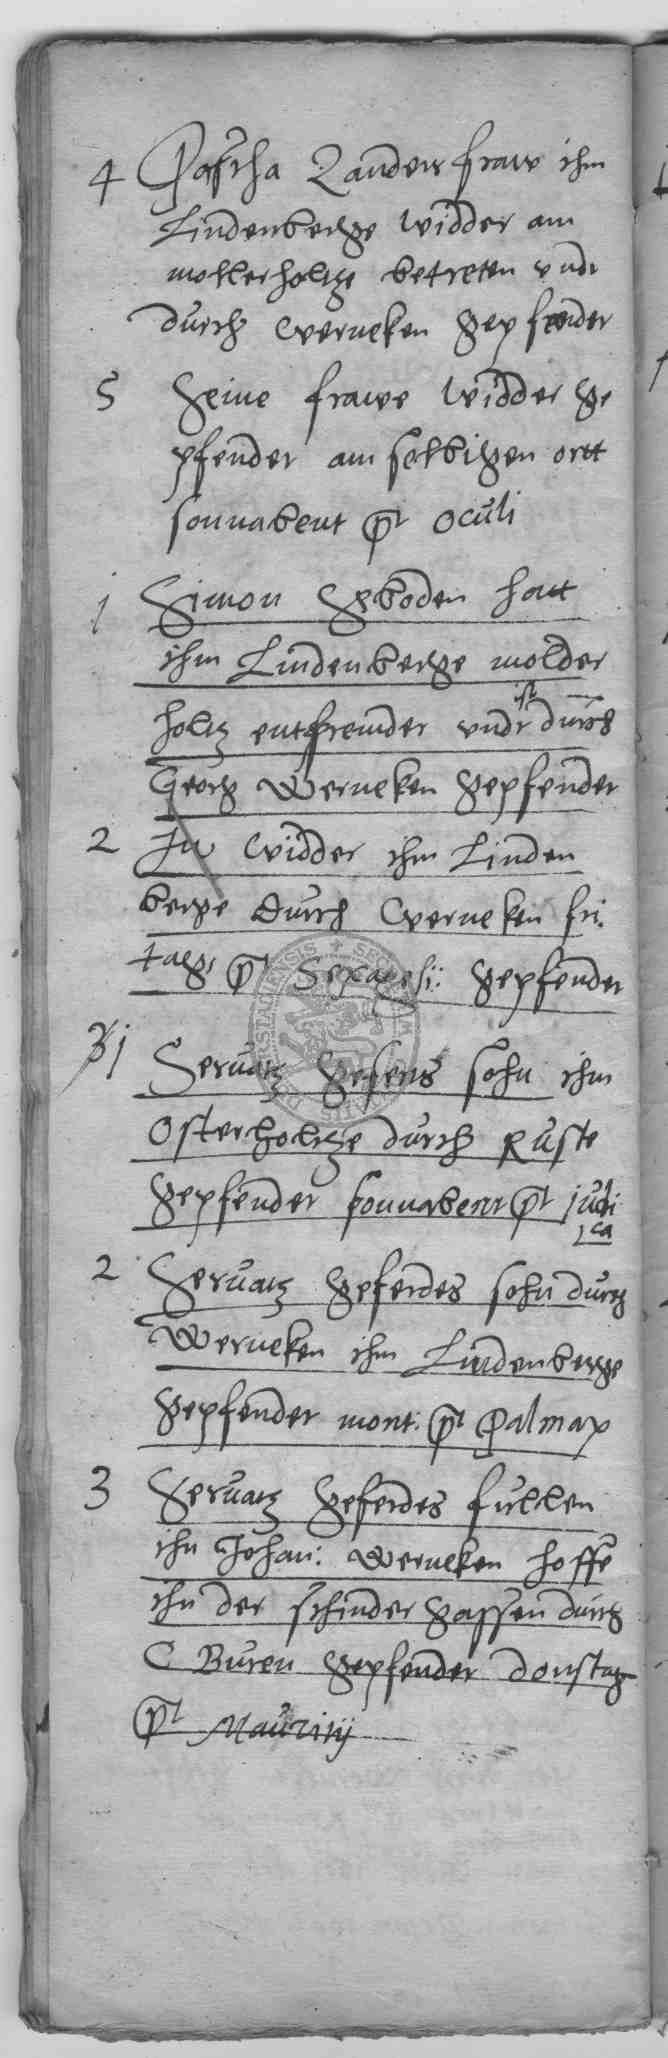 4 Pascha Zander fraw ihm
Lindenberge widder am
mollerholtze betreten undt
durch Werneken gepfendet
5 Seine frawe widder ge
pfendet am selbigen ortt
sonnabent pt oculi
1 Simon hatt
ihm Lindenberge molder
holtz entfremdet undt ist durch
Georg Werneken gepfendet
2 Itz widder ihm Linden
berge durch Werneken fri.
tags pt Sexagesi: gepfendet
1 Servatz sohn ihm
Osterholtze durch Ruste
gepfendet sonnabent pt judi
ca
2 Servatz Geferdes sohn durch
Werneken ihm Lindenberge
gepfendet mont: pt Palmar
3 Servatz Geferdes fullen
ihn Johan: Werneken hoffe
ihn der schinder gassen durch
C Buren gepfendet donstag
pt Mauritij